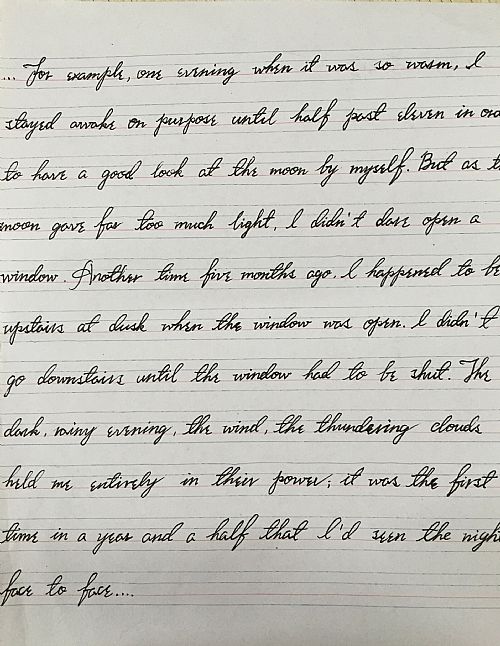 ... For example, one evening when it was so warm, I
stayed awake on purpose until half past eleven in
to have a good look at the moon by myself. But as
moon gave far too much light, I didn't dare open a
window. Another time five months ago, I happened to be
upstairs at dusk when the window was open. I didn't
go downstairs until the window had to be shut. The
dark, rainy evening, the wind, the thundering clouds
held me entirely in their power; it was the first
time in a year and a half that I'd seen the night
face to face....